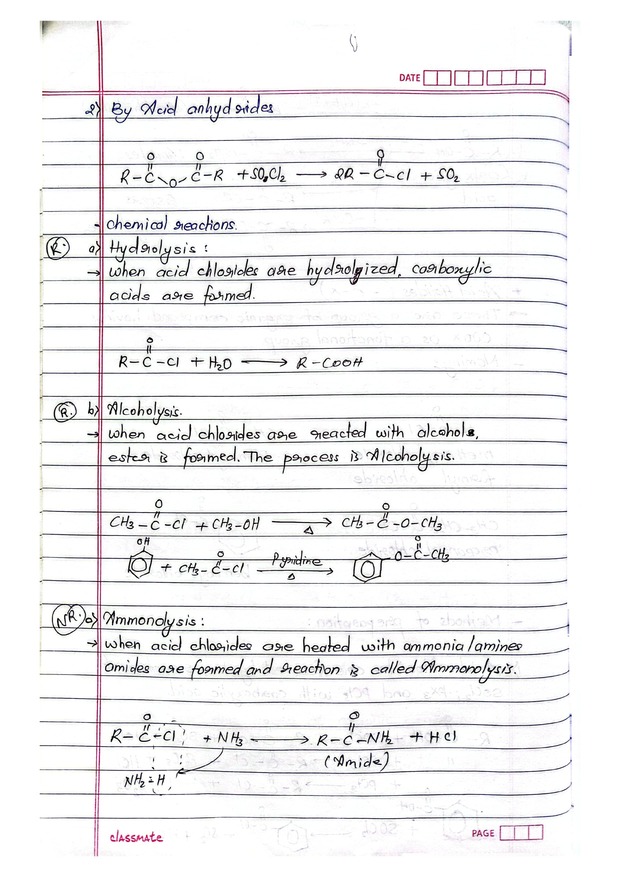 DATE
2) By Acid anhydrides
O O O
R-C-O-C-R + SO2Cl2 → 2R-C-Cl + SO2
- chemical reactions.
R. a) Hydrolysis :
→ when acid chlorides are hydrolyized, carboxylic
acids are formed.
O
R-C-Cl + H2O → R-COOH
R. b) Alcoholysis.
→ when acid chlorides are reacted with alcohols,
ester is formed. The process is Alcoholysis.
O O
CH3-C-Cl + CH3-OH → CH3-C-O-CH3
Δ
OH O O
+ CH3-C-Cl Pyridine → O-C-CH3
Δ
NR. a) Ammonolysis :
→ when acid chlorides are heated with ammonia/amines
amides are formed and reaction is called Ammonolysis.
O O
R-C-Cl + NH3 → R-C-NH2 + HCl
(Amide)
NH2-H
classmate
PAGE